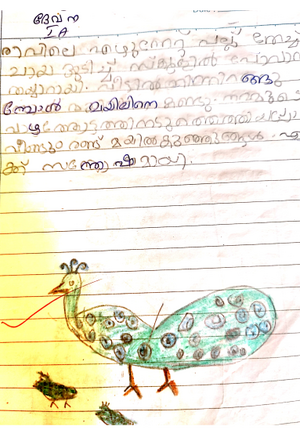 ദേവന
I A
രാവിലെ എഴുന്നേറ്റ് പല്ല് തേച്ച്
ചായ കുടിച്ച് സ്കൂളിൽ പോവാൻ
തയ്യാറായി. വീട്ടിൽ നിന്നിറങ്ങു
മ്പോൾ മയിലിനെ കണ്ടു നമ്മുടെ
വാഴത്തോട്ടത്തിനടുത്തെത്തി
വീണ്ടും രണ്ട് മയിൽകുഞ്ഞുങ്ങൾ.
ക്ക് സന്തോഷമായി.